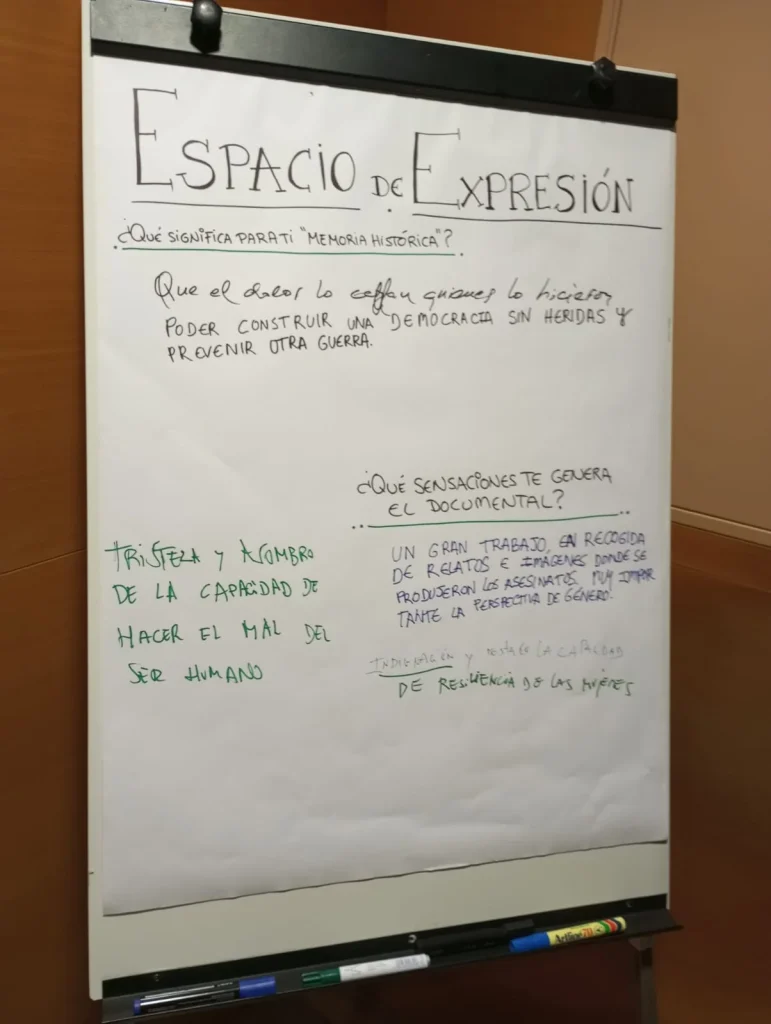 ESPACIO DE EXPRESIÓN
¿QUÉ SIGNIFICA PARA TI "MEMORIA HISTÓRICA"?
Que el dolor lo quienes lo hicieron
PODER CONSTRUIR UNA DEMOCRACIA SIN HERIDAS Y
PREVENIR OTRA GUERRA.
¿QUÉ SENSACIONES TE GENERA
EL DOCUMENTAL?
TRISTEZA Y ASOMBRO
DE LA CAPACIDAD DE
HACER EL MAL DEL
SER HUMANO
UN GRAN TRABAJO, EN RECOGIDA
DE RELATOS E IMÁGENES DONDE SE
PRODUJERON LOS ASESINATOS. MUY IMPOR
TANTE LA PERSPECTIVA DE GÉNERO.
INDIGNACIÓN Y LA CAPACIDAD
DE RESILIENCIA DE LAS MUJERES
Artline 70